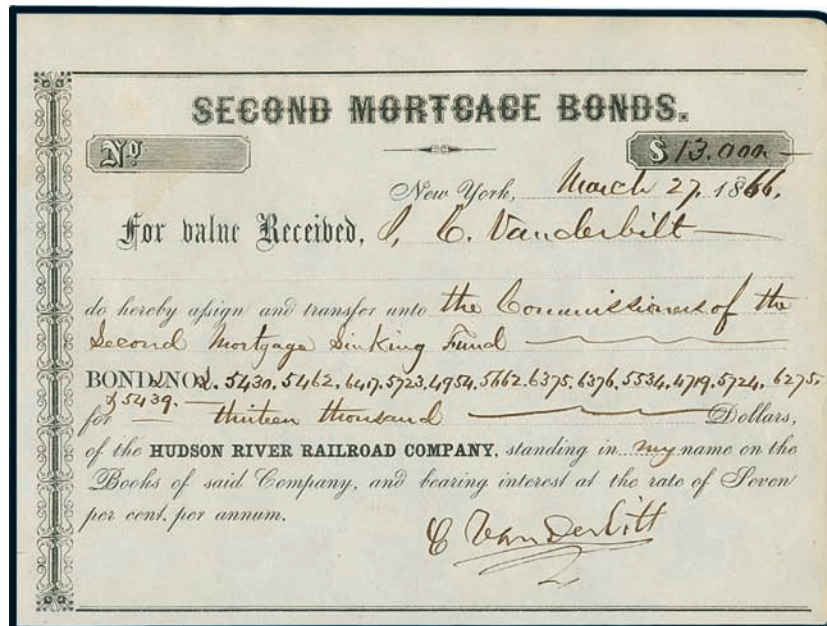 SECOND MORTGAGE BONDS.
No.
$ 13.000
New York, March 27. 1866.
For value Received, I, C. Vanderbilt
do hereby assign and transfer unto the Commissioners of the
Second Mortgage Sinking Fund
BONDS NOS. 5430. 5462. 6417. 5723. 4954. 5662. 6375. 6376. 5534. 4719. 5724. 6275.
& 5439.
for thirteen thousand Dollars,
of the HUDSON RIVER RAILROAD COMPANY, standing in my name on the
Books of said Company, and bearing interest at the rate of Seven
per cent. per annum.
C Vanderbilt